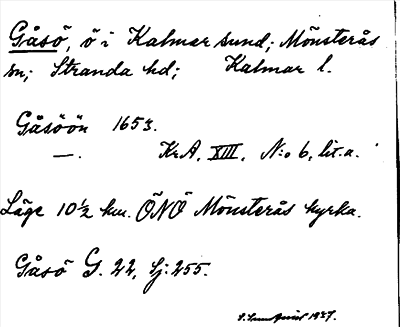 Gåsö, ö i Kalmar sund; Mönsterås
sn; Stranda hd; Kalmar l.
Gåsöön 1653.
—. Kr.A. XIII. N:o 6, lit. a.
Läge 10½ km. ÖNÖ Mönsterås kyrka.
Gåsö G. 22, Sj: 255.
1927.